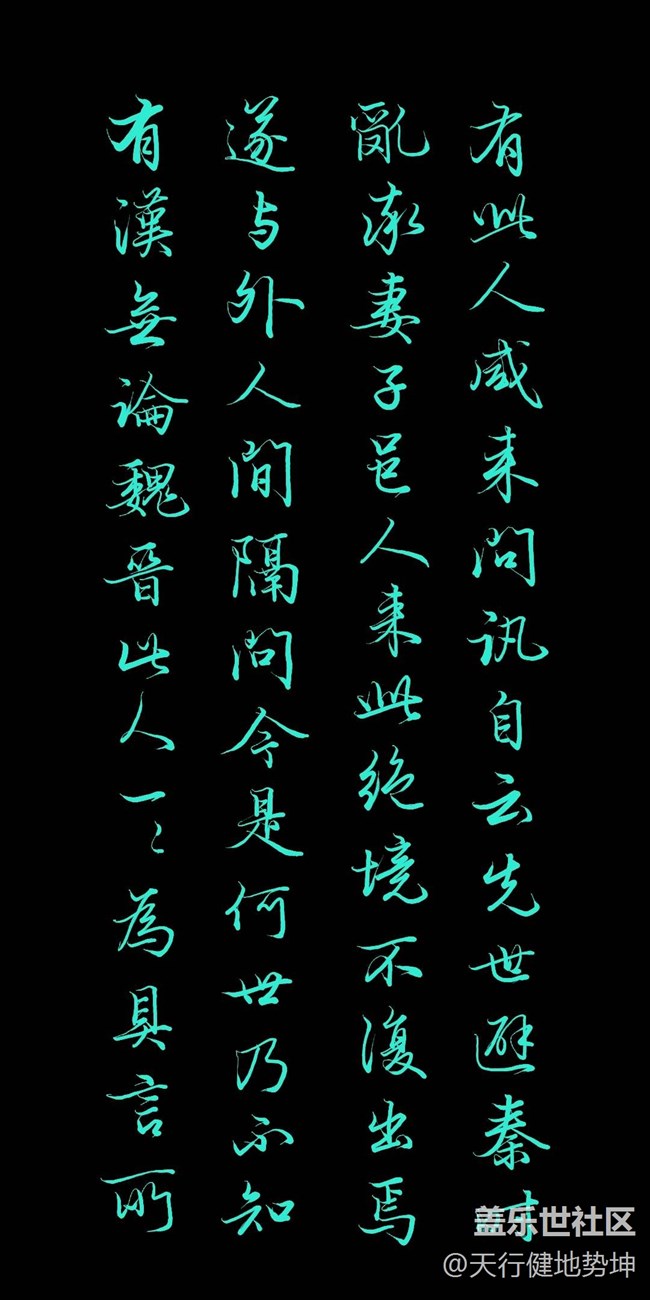 有此人咸来問訊自云先世避秦时
亂率妻子邑人来此絶境不復出焉
遂与外人間隔問今是何世乃不知
有漢無論魏晉此人一〻為具言所
盖乐世社区
@天行健地势坤